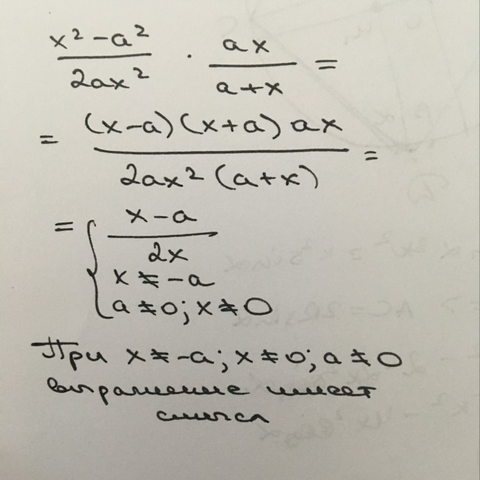 x² - a² / 2ax² · ax / a+x =
= (x-a)(x+a)ax / 2ax²(a+x) =
= { x-a / 2x
x ≠ -a
a ≠ 0; x ≠ 0
При x ≠ -a; x ≠ 0; a ≠ 0
выражение имеет
смысл